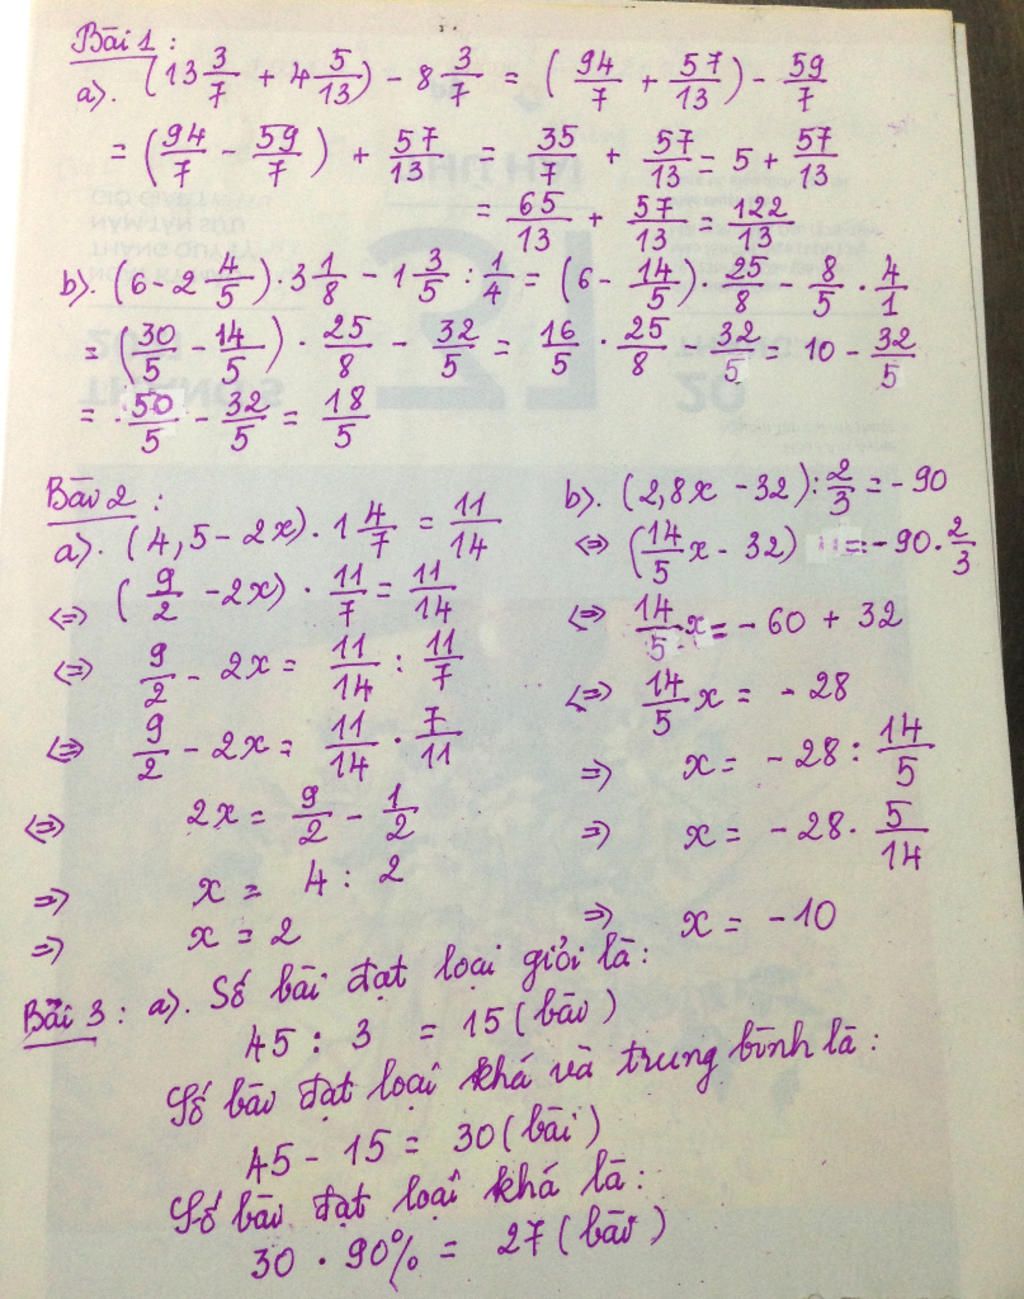 Bài 1 :
a). (13 3/7 + 4 5/13) - 8 3/7 = (94/7 + 57/13) - 59/7
= (94/7 - 59/7) + 57/13 = 35/7 + 57/13 = 5 + 57/13
= 65/13 + 57/13 = 122/13
b). (6 - 2 4/5) . 3 1/8 - 1 3/5 : 1/4 = (6 - 14/5) . 25/8 - 8/5 . 4/1
= (30/5 - 14/5) . 25/8 - 32/5 = 16/5 . 25/8 - 32/5 = 10 - 32/5
= 50/5 - 32/5 = 18/5
Bài 2 :
a). (4,5 - 2x) . 1 4/7 = 11/14
<=> (9/2 - 2x) . 11/7 = 11/14
<=> 9/2 - 2x = 11/14 : 11/7
<=> 9/2 - 2x = 11/14 . 7/11
<=> 2x = 9/2 - 1/2
=> x = 4 : 2
=> x = 2
b). (2,8x - 32) : 2/3 = - 90
<=> (14/5 x - 32) = - 90 . 2/3
<=> 14/5 x = - 60 + 32
<=> 14/5 x = - 28
=> x = - 28 : 14/5
=> x = - 28 . 5/14
=> x = - 10
Bài 3 : a). Số bài đạt loại giỏi là :
45 : 3 = 15 (bài)
Số bài đạt loại khá và trung bình là :
45 - 15 = 30 (bài)
Số bài đạt loại khá là :
30 . 90% = 27 (bài)